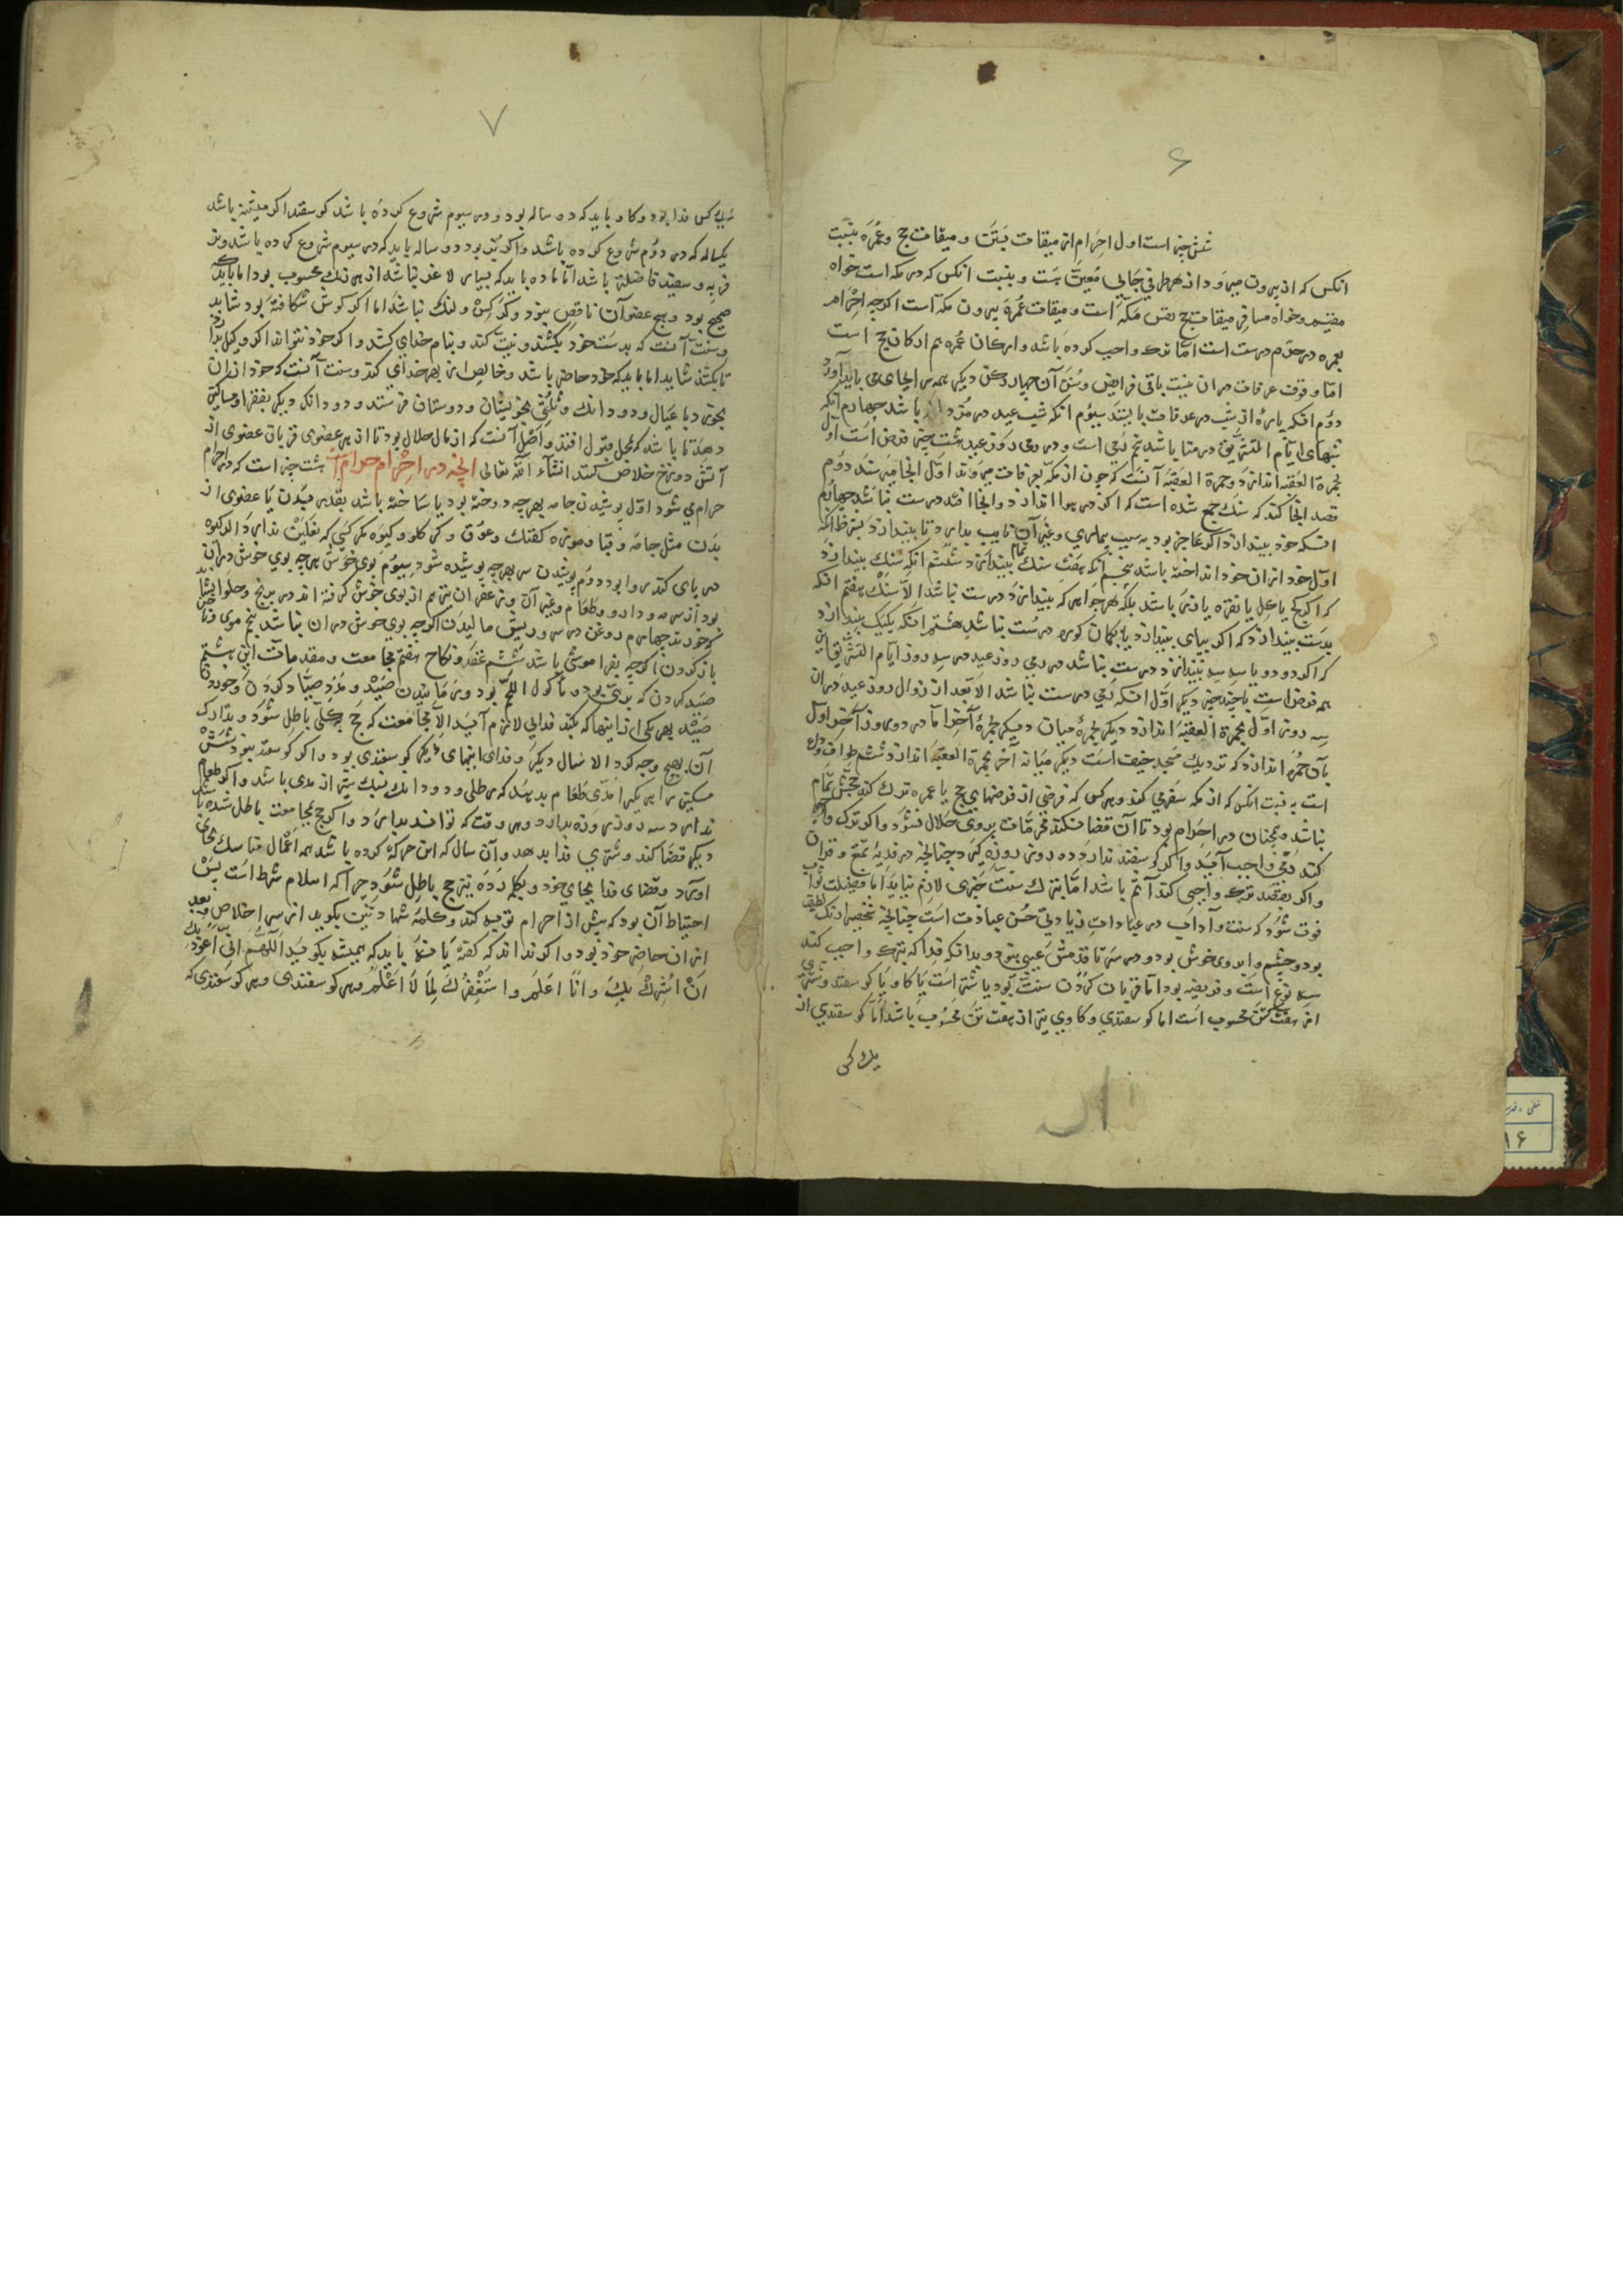 ۶
شش چیز است اول احرام از میقات بستن و میقات حج و عمره بنسبت
انکس که از بیرون میرود از هر طرفی جایی معین است و بنسبت انکس که در مکه است خواه
مقیم و خواه مسافر میقات حج نفس مکه است و میقات عمره بیرون مکه است اکرچه احرام
بعمره در حرم درست است اما ترک واجب کرده باشد و ارکان عمره هم ارکان حج است
اما وقوف عرفات در ان نیست باقی فرایض و سنن آن چهار رکن دیکر همه در انجا می باید آورد
دوم انکه پارهٔ از شب در عرفات بایستد سیوم انکه شب عید در مزدلفه باشد چهارم آنکه
شبهای ایام التشریق در منا باشد پنجم رمی است و در رمی روز عید هشت چیز فرض است اول
بجمرة العقبه اندازد و جمرة العقبه آنست که چون از مکه بعرفات میروند اول انجا میرسند دوم
قصد انجا کند که سنک جمع شده است که اکر در هوا اندازد و انجا افتد درست نباشد چهارم
انکه خود بیندازد اکر عاجز بود به سبب بیماری و غیر آن نایب بدارد تا بیندازد بشرط انکه
اول خود از ان خود انداخته باشد پنجم آنکه هفت سنک تمام بیندازد ششم انکه سنک بیندازد
که اکر کچ یا کل یا نقره یا زر باشد بلکه هر جواهر که بیندازد درست نباشد الا سنک هفتم انکه
بدست بیندازد که اکر بپای بیندازد یا بکمان کروه درست نباشد هشتم انکه یکیک بیندازد
که اکر دو دو یا سه سه بیندازد درست نباشد در رمی روز عید در سه روز ایام التشریق این
همه فرض است با چند چیز دیکر اول انکه رمی درست نباشد الا بعد از زوال روز عید در ان
سه روز اول بجمرة العقبه اندازد دیکر بجمرهٔ میان دیکر بجمرهٔ آخر اما در دو روز آخر اول
بآن جمره اندازد که نزدیک مسجد خیف است دیکر میانه آخر بجمرة العقبه اندازد ششم طواف وداع
است به نسبت انکس که از مکه سفر می کند و هر کس که فرضی از فرضهای حج یا عمره ترک کند حجش تمام
نباشد و همچنان در احرام بود تا آن قضا نکند محرمات بروی حلال نشود و اکر ترک واجب
کند دمی واجب آید و اکر کوسفند ندارد ده روز روزه کیرد چنانچه در فدیهٔ تمتع و قران
و اکر بقصد ترک واجبی کند آثم باشد اما بترک سنت چیزی لازم نیاید اما فضیلت ثواب
فوت شود که سنت و آداب در عبادات زیادتی حسن عبادت است چنانچه شخصی را نک لطیف
بود و چشم و ابروی خوش بود و در سر تا قدمش عیبی نبود و بدانکه فدا که بترک واجب کند
سه نوع است و فریضه بود اما قربان کردن سنت بود یا شتر است یا کاو یا کوسفند و شتری
از هفت کس محسوب است اما کوسفندی و کاوی نیز از هفت تن محسوب باشد اما کوسفندی از
یک کس
۷
یک کس فدا بود و کاو باید که دو ساله بود و در سیوم شروع کرده باشد کوسفند اکر میشینه باشد
یکساله که در دوم شروع کرده باشد و اکر بز بود دو ساله باید که در سیوم شروع کرده باشد و بز
فربه و سفید فاضلتر باشد اما ماده باید که بسیار لاغر نباشد از هر رنک محسوب بود اما باید که
صحیح بود و هیچ عضو آن ناقص نبود و کر کس و لنک نباشد اما اکر کوش شکافته بود شاید
و سنت آنست که بدست خود بکشند و نیت کند و بنام خدای کشد و اکر خود نتواند اکر وکیل بدارد
تا بکشد شاید اما باید که خود حاضر باشد و خالص از بهر خدای کند و سنت آنست که خود از ان
بخورد با عیال و دو دانک و ثلثی بخویشان و دوستان فرستد و دو دانک دیکر بفقرا و مساکین
دهد تا باشد که بمحل قبول افتد و اصل آنست که از مال حلال بود تا از هر عضوی قربان عضوی از
آتش دوزخ خلاص کند انشآء الله تعالی انچه در احرام حرام است هشت چیز است که در احرام
حرام می شود اول پوشیدن جامه بهر چه دوخته بود یا ساخته باشد بقدر بدن یا عضوی از
بدن مثل جامه و قبا و موزه کفتک و عرق و کرکلو و کیوه مکر کسی که نعلین ندارد اکر کیوه
در پای کند روا بود دوم پوشیدن سر بهر چه پوشیده شود سیوم بوی خوش هر چه بوی خوش در ان
بود از سر مه و دارو و طعام و غیر آن و زعفران نیز هم از بوی خوش کرفته اند در برنج و حلوا نشاید
که خورند چهارم روغن در سر و ریش مالیدن اکرچه بوی خوش در ان نباشد پنجم موی و ناخن
باز کردن اکرچه بفراموشی باشد ششم عقد و نکاح هفتم مجامعت و مقدمات این هشتم
صید کردن که بری بود و مأکول اللحم بود و رمانیدن صید و مدد صیاد کردن و خوردن
صید بهر یکی از اینها که بکند فدایی لازم آید الا مجامعت که حج بکلی باطل شود و تدارک
آن بهیچ وجه نکردد الا سال دیکر و فدای اینهای دیکر کوسفندی بود و اکر کوسفند نبود شش
مسکین را هر یکی را مدی طعام بدهد که رطلی و دو دانک نیک شیراز مدی باشد و اکر طعام
ندارد سه روز روزه بدارد و هر وقت که تواند بدارد و اکر حج بمجامعت باطل شده باشد
دیکر قضا کند و شتری فدا بدهد و آن سال که این حرکت کرده باشد همه اعمال مناسک بجای
آورد و قضای فدا بجای خود و بکلمه ردة نیز حج باطل شود چرا که اسلام شرط است پس
احتیاط آن بود که پیش از احرام توبه کند و کلمهٔ شهادتین بکوید از سر اخلاص و بعد
از ان حاضر خود بود و اکر نداند که کفته یا نه باید که همیشه بکوید اللهم انی اعوذ بک
ان اشرک بک و انا اعلم و استغفرک لما لا اعلم و هر کوسفندی و هر کوسفندی که